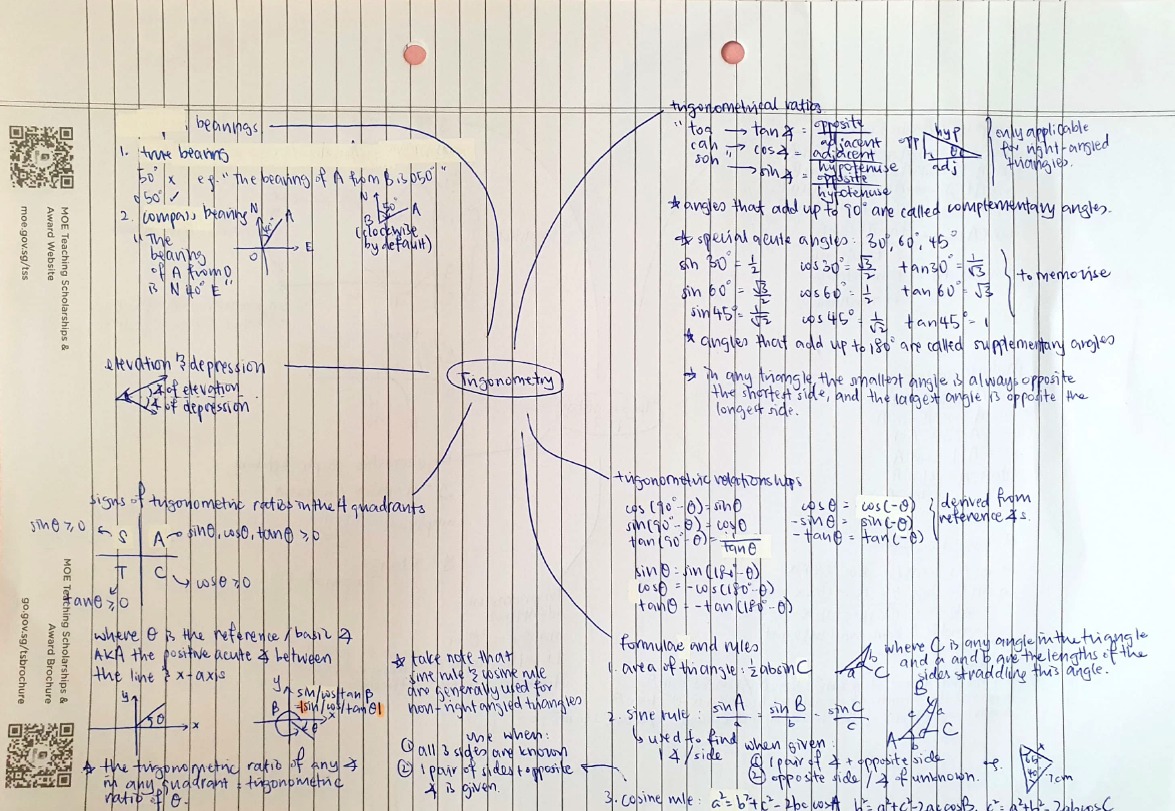 Trigonometry
bearings
1. true bearing
50° x e.g. "The bearing of A from B is 050°"
050° ✓
N
50°
B
A
(clockwise
by default)
2. compass bearing
"The
bearing
of A from O
is N 40° E"
N
A
40°
O
E
elevation & depression
∡ of elevation
∡ of depression
signs of trigonometric ratios in the 4 quadrants
sinθ ≥ 0 ← S
A → sinθ, cosθ, tanθ ≥ 0
T
C → cosθ ≥ 0
tanθ ≥ 0
where θ is the reference / basic ∡
AKA the positive acute ∡ between
the line & x-axis
y
θ
x
y
sin/cos/tan B
= |sin/cos/tan θ|
B
x
θ
* the trigonometric ratio of any ∡
in any quadrant = trigonometric
ratio of θ.
* take note that
sine rule & cosine rule
are generally used for
non-right angled triangles
use when:
① all 3 sides are known
② 1 pair of sides + opposite
∡ is given.
trigonometrical ratios
"toa → tan∡ = opposite
adjacent
cah → cos∡ = adjacent
hypotenuse
soh" → sin∡ = opposite
hypotenuse
opp
hyp
θ
adj
only applicable
for right-angled
triangles.
* angles that add up to 90° are called complementary angles.
* special acute angles: 30°, 60°, 45°
sin 30° = 1/2 cos 30° = √3/2 tan 30° = 1/√3
sin 60° = √3/2 cos 60° = 1/2 tan 60° = √3
sin 45° = 1/√2 cos 45° = 1/√2 tan 45° = 1
to memorise
* angles that add up to 180° are called supplementary angles
→ in any triangle, the smallest angle is always opposite
the shortest side, and the largest angle is opposite the
longest side.
trigonometric relationships
cos (90° - θ) = sinθ
sin (90° - θ) = cosθ
tan (90° - θ) = 1/tanθ
cosθ = cos(-θ)
-sinθ = sin(-θ)
-tanθ = tan(-θ)
derived from
reference ∡s.
sinθ = sin (180° - θ)
cosθ = -cos (180° - θ)
tanθ = -tan (180° - θ)
formulae and rules
1. area of triangle: 1/2 absinC
b
a
C
where C is any angle in the triangle
and a and b are the lengths of the
sides straddling this angle.
2. sine rule: sin A/a = sin B/b = sin C/c
B
c
a
A
b
C
used to find
1 ∡/side
when given:
① 1 pair of ∡ + opposite side
② opposite side / ∡ of unknown.
x
7cm
3. cosine rule: a² = b² + c² - 2bc cosA b² = a² + c² - 2ac cosB, c² = a² + b² - 2ab cosC
MOE Teaching Scholarships &
Award Website
moe.gov.sg/tss
MOE Teaching Scholarships &
Award Brochure
go.gov.sg/tsbrochure